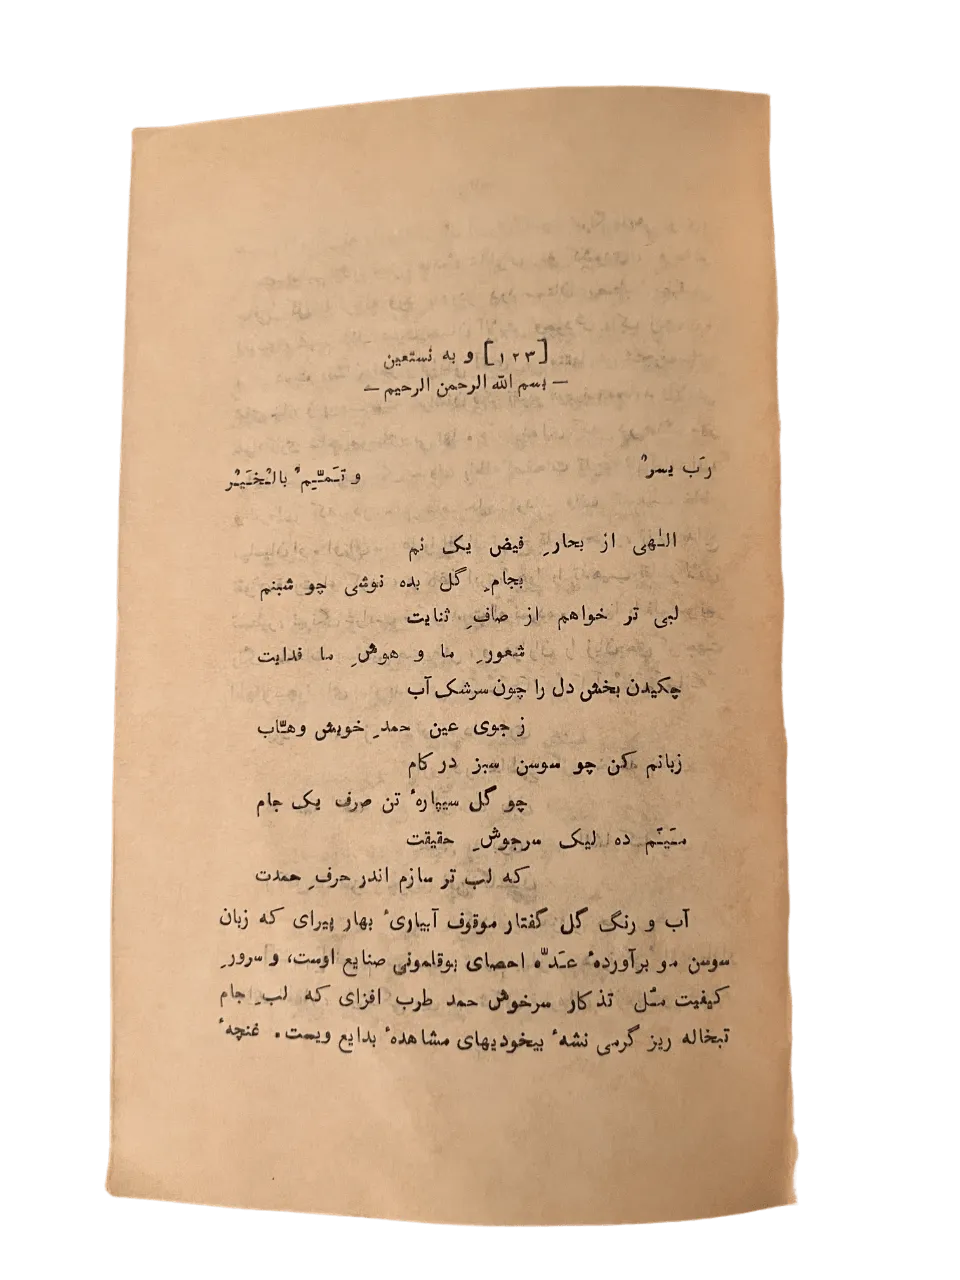 [۱۲۳] و به نستعین
— بسم الله الرحمن الرحیم —
رَب یسرْ و تَمّیِمْ بالْخَیْر
الٰهی از بحارِ فیض یک نم
بجامِ گل بده نوشی چو شبنم
لبی تر خواهم از صافِ ثنایت
شعورِ ما و هوشِ ما فدایت
چکیدن بخش دل را چون سرشک آب
ز جوی عین حمدِ خویش وهّاب
زبانم کن چو سوسن سبز در کام
چو گل سیپارهٔ تن صرف یک جام
مَیَنّم ده لیک سرجوشِ حقیقت
که لب تر سازم اندر حرفِ حمدت
آب و رنگ گل گفتار موقوف آبیاریٔ بهار پیرای که زبان
سوسن مو برآوردهٔ عَدّه احصای بوقلمونی صنایع اوست، و سرورِ
کیفیت مُل تذکار سرخوش حمد طرب افزای که لبِ جام
تبخاله ریز گرمی نشهٔ بیخودیهای مشاهدهٔ بدایع ویست. غنچهٔ